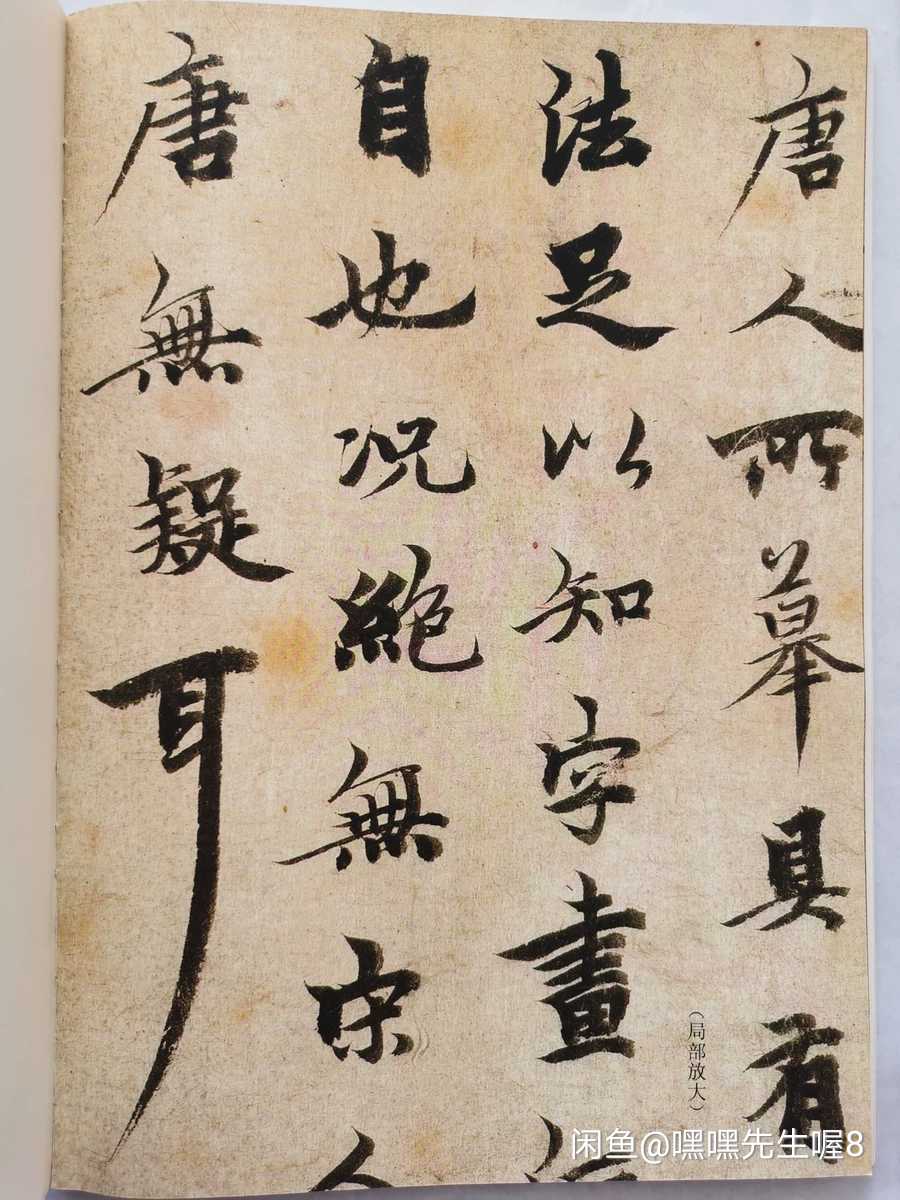 唐人所摹具有
法足以知字畫
自也况絶無宋人
唐無疑耳
（局部放大）
闲鱼@嘿嘿先生喔8